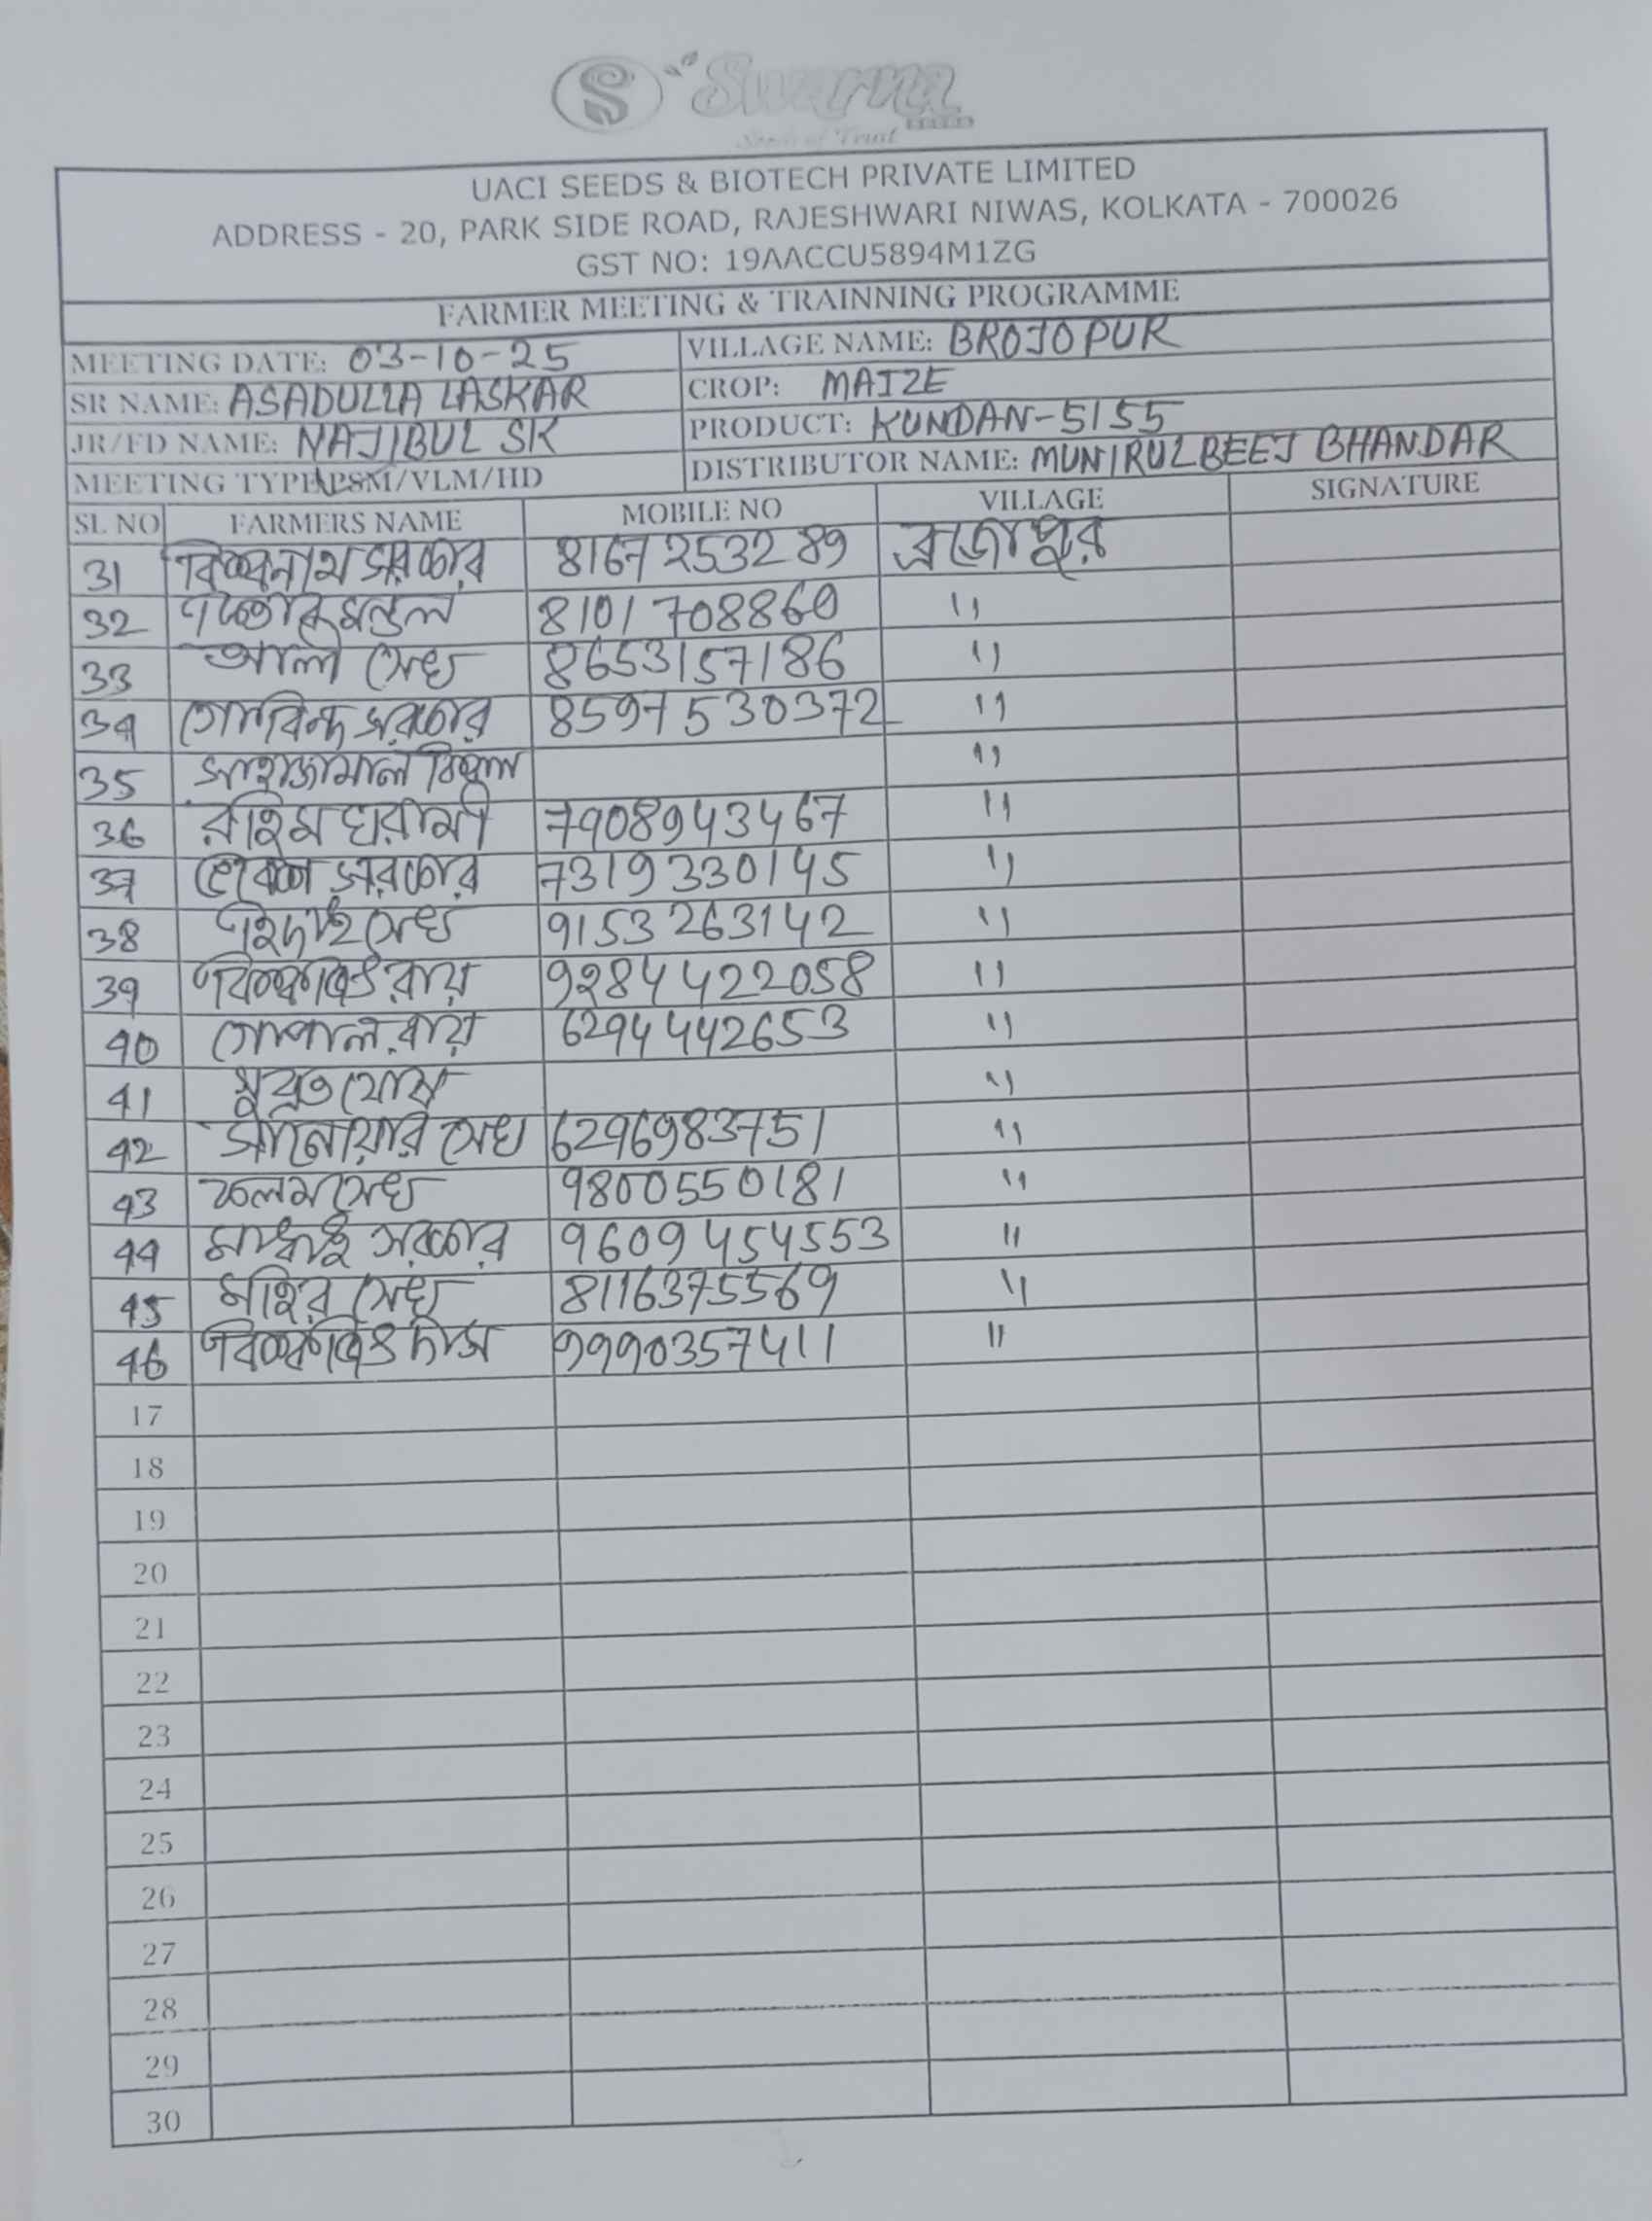 S Swarna
SEEDS
Seeds of Trust
UACI SEEDS & BIOTECH PRIVATE LIMITED
ADDRESS - 20, PARK SIDE ROAD, RAJESHWARI NIWAS, KOLKATA - 700026
GST NO: 19AACCU5894M1ZG
FARMER MEETING & TRAINNING PROGRAMME
MEETING DATE: 03-10-25 VILLAGE NAME: BROJOPUR
SR NAME: ASADULLA LASKAR CROP: MAIZE
JR/FD NAME: NAJIBUL SK PRODUCT: KUNDAN-5155
MEETING TYPE: PSM/VLM/HD DISTRIBUTOR NAME: MUNIRUL BEEJ BHANDAR
SL NO FARMERS NAME MOBILE NO VILLAGE SIGNATURE
31 বিশ্বনাথ সরকার 8167253289 ব্রজোপুর
32 মন্ডল 8101708860 "
33 আলি সেখ 8653157186 "
34 গোবিন্দ সরকার 8597530372 "
35 সাহাজামাল বিশ্বাস "
36 রহিম ঘরামী 7908943467 "
37 সরকার 7319330145 "
38 সেখ 9153263142 "
39 বিশ্বজিৎ রায় 9284422058 "
40 গোপাল রায় 6294442653 "
41 সুব্রত ঘোষ "
42 সানোয়ার সেখ 6296983751 "
43 সেখ 9800550181 "
44 সরকার 9609454553 "
45 মহির সেখ 8116375569 "
46 বিশ্বজিৎ দাস 9990357411 "
17
18
19
20
21
22
23
24
25
26
27
28
29
30